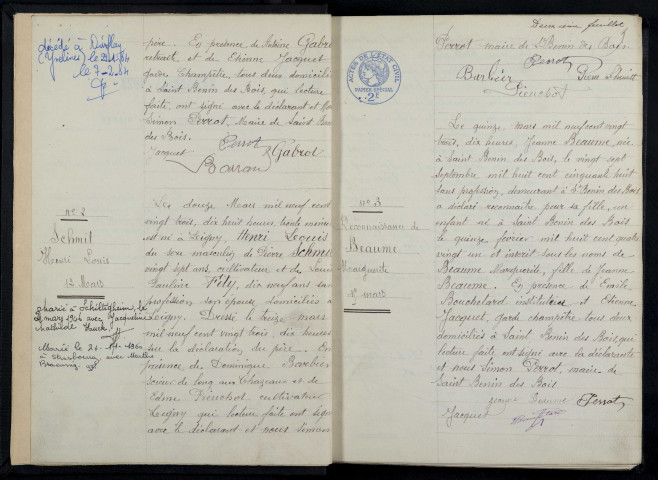 décédé à
(Yvelines) le
le 7-2-84
père. En présence de Antoine Gabrol
retraité et de Etienne Jacquet
garde champêtre, tous deux domiciliés
à Saint Benin des Bois, qui lecture
faite, ont signé avec le déclarant et Nous
Simon Perrot, Maire de Saint Benin
des Bois.
Perrot
Jacquet Gabrol
n° 2
Schmit
Henri Louis
12 Mars
Marié à le
mars 19 avec Jacqueline
Mathilde
Marié le 21
à Strasbourg avec Marthe
Le douze Mars mil neuf cent
vingt trois, dix huit heures, trente minutes
est né à Leigny, Henri Louis
du sexe masculin, de Pierre Schmit
vingt sept ans, cultivateur et de Louise
Pauline Fély, dix neuf ans sans
profession son épouse, domiciliés à
Leigny. Dressé le treize mars
mil neuf cent vingt trois, dix heures
sur la déclaration du père. En
présence de Dominique Barbier
scieur de long aux Chazeaux et de
Edme Piénchot cultivateur
Leigny qui lecture faite ont signé
avec le déclarant et nous Simon
Deuxième feuillet
Perrot, maire de St Benin des Bois.
Perrot
Barbier
ACTES DE L'ETAT CIVIL
PAPIER SPÉCIAL
2F
n° 3
Reconnaissance de
Beaume
Marguerite
15 mars
Le quinze mars mil neuf cent vingt
trois, dix heures, Jeanne Beaume, née
à Saint Benin des Bois, le vingt sept
Septembre mil huit cent cinquante huit
sans profession, demeurant à St Benin des Bois
a déclaré reconnaître pour sa fille, un
enfant né à Saint Benin des Bois
le quinze février mil huit cent quatre
vingt un et inscrit sous les noms de
Beaume Marguerite, fille de Jeanne
Beaume. En présence de Emile
Bouchelard instituteur et Etienne
Jacquet, garde champêtre tous deux
domiciliés à Saint Benin des Bois, qui
lecture faite, ont signé avec la déclarante
et nous Simon Perrot, maire de
Saint Benin des Bois
Jeanne Beaume Perrot
Jacquet